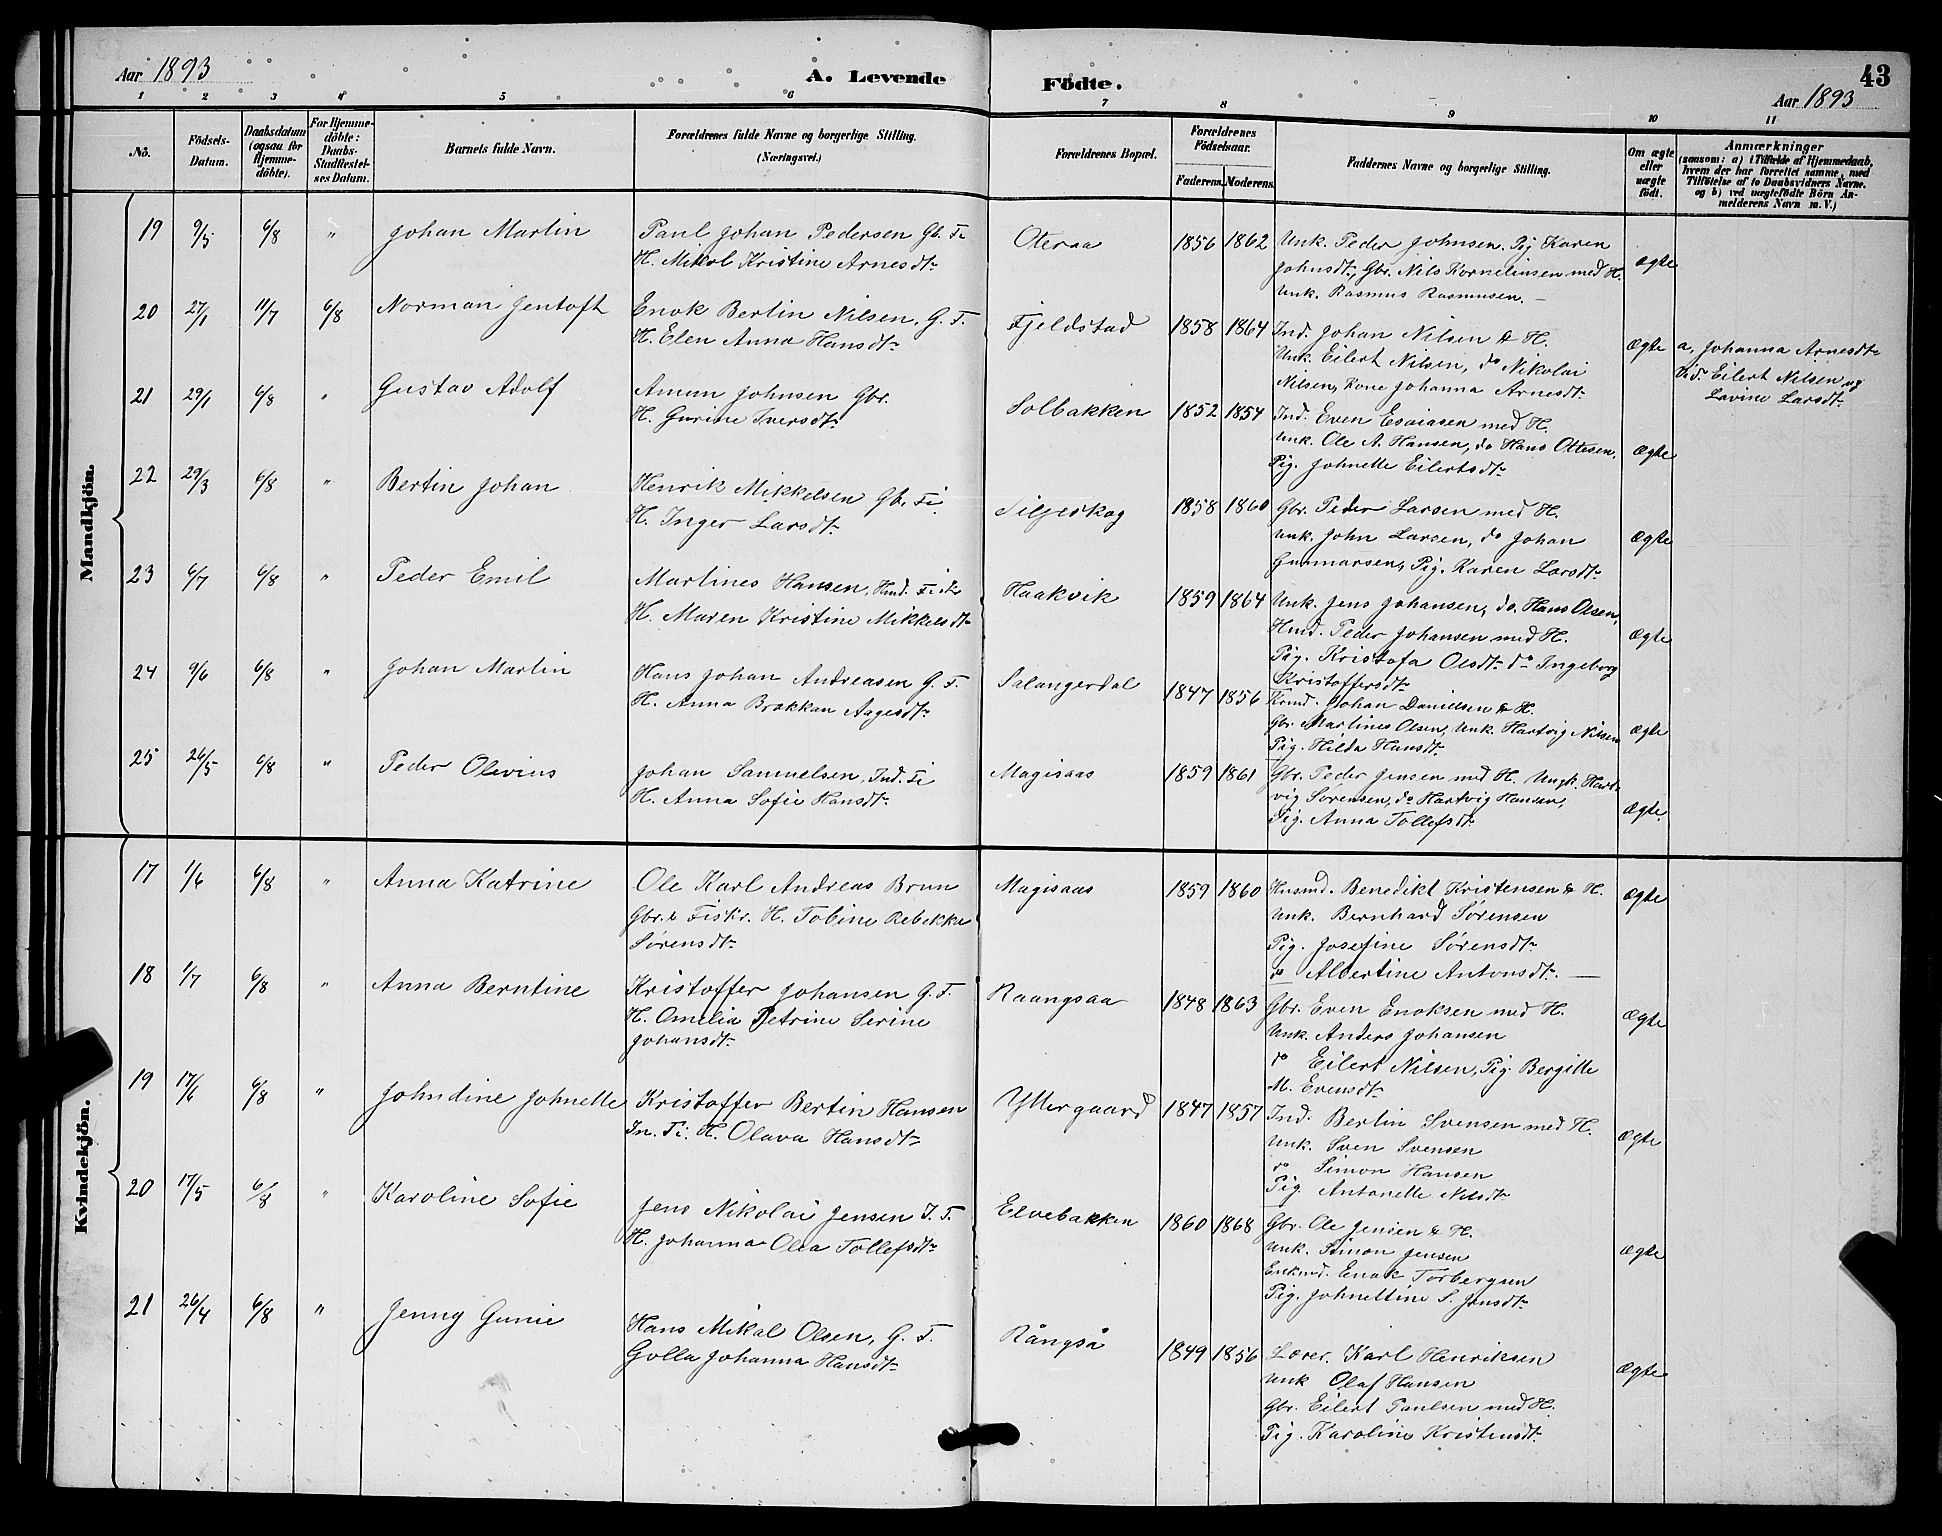 Aar 1893
A. Levende Födte.
43
Aar 1893
1 2 3 4 5 6 7 8 9 10 11
No.
Födsels-Datum.
Daabsdatum (ogsaa for Hjemme-döbte).
For Hjemme-döbte: Daabs-Stadfæstel-ses Datum.
Barnets fulde Navn.
Forældrenes fulde Navne og borgerlige Stilling. (Næringsvei.)
Forældrenes Bopæl.
Forældrenes Födselsaar.
Faderens. Moderens.
Faddernes Navne og borgerlige Stilling.
Om ægte eller uægte födt.
Anmærkninger
(saasom: a) i Tilfælde af Hjemmedaab, hvem der har forrettet samme, med Tilföielse af to Daabsvidners Navne, og b) ved uægtefödte Börn An-melderens Navn m. V.)
Mandkjön.
19 9/5 6/8 " Johan Martin
Paul Johan Pedersen Gb. Fi
H. Mikal Kristine Arnesdtr
Oteraa 1856 1862
Unk. Peder Johnsen, Pig Karen
Johnsdtr, Gbr. Nils Kornelinsen med H.
Unk. Rasmus Rasmusen. —
ægte
20 27/1 11/7 6/8 Norman Jentoft
Enok Bertin Nilsen, G. F.
H. Elen Anna Hansdtr
Fjeldstad 1858 1864
Ind. Johan Nilsen & H.
Unk. Eilert Nilsen, do Nikolai
Nilsen, Kone Johanna Arnesdtr
Ægte
a, Johanna Arnesdtr
Vid. Eilert Nilsen og
Lavine Larsdtr
21 29/1 6/8 " Gustav Adolf
Amun Johnsen Gbr.
H. Gurine Iversdtr
Solbakken 1852 1854
Ind. Even Esaiasen med H.
Unk. Ole A. Hansen, do Hans Ottesen.
Pig. Johnette Eilertsdtr
Ægte
22 29/3 6/8 " Bertin Johan
Henrik Mikkelsen Gb. Fi
H. Inger Larsdtr
Siljeskog 1858 1860
Gbr. Peder Larsen med H.
Unk. John Larsen, do Johan
Gunnarsen, Pig. Karen Larsdtr
Ægte
23 6/7 6/8 " Peder Emil
Martines Hansen, Hmd. Fisk
H. Maren Kristine Mikkelsdtr
Haakvik 1859 1864
Unk. Jens Johansen, do. Hans Olsen,
Hmd. Peder Johansen med H.
Pig. Kristofa Olsdtr do Ingeborg
Kristoffersdtr
Ægte
24 9/6 6/8 " Johan Martin
Hans Johan Andreasen G. F.
H. Anna Brakkan Aagesdtr
Salangerdal 1847 1856
Johan Danielsen & H.
Gbr. Martines Olsen, Unk. Hartvig Nilsen
Pig. Hilda Hansdtr
Ægte
25 26/5 6/8 " Peder Olevius
Johan Samuelsen, Ind. Fi
H. Anna Sofie Hansdtr
Magisaas 1859 1861
Gbr. Peder Jensen med H. Ungk. Hart-
vig Sørensen, do Hartvig Hansen,
Pig. Anna Tollefsdtr
Ægte.
Kvindekjön.
17 1/6 6/8 " Anna Katrine
Ole Karl Andreas Brun
Gbr. & Fiskr. H. Tobine Rebekka
Sørensdtr
Magisaas 1859 1860
Husmd. Benedikt Kristensen & H.
Unk. Bernhard Sørensen
Pig. Josefine Sørensdtr
do Albertine Antonsdtr. —
Ægte
18 1/7 6/8 " Anna Berntine
Kristoffer Johansen G. F.
H. Omelia Petrine Serine
Johansdtr
Raangsaa 1848 1863
Gbr. Even Enoksen med H.
Unk. Anders Johansen
do Eilert Nilsen, Pig Bergitte
M. Evensdtr
Ægte
19 17/6 6/8 " Johndine Johnette
Kristoffer Bertin Hansen
In. Fi. H. Olava Hansdtr
Yttergaard 1847 1857
Ind. Bertin Svensen med H.
Unk. Sven Svensen
do Simon Hansen
Pig. Antonette Nilsdtr
Ægte
20 17/5 6/8 " Karoline Sofie
Jens Nikolai Jensen I. F.
H. Johanna Olea Tollefsdtr
Elvebakken 1860 1868
Gbr. Ole Jensen & H.
Unk. Simon Jensen
Enkmd. Enok Torbergsen
Pig. Johnettine S. Jensdtr
Ægte
21 26/4 6/8 " Jenny Gunie
Hans Mikal Olsen, G. F.
Golla Johanna Hansdtr
Rångså 1849 1856
Lærer. Karl Henriksen
Unk Olaf Hansen
Gbr. Eilert Paulsen med H.
Pig. Karoline Kristensdtr
Ægte